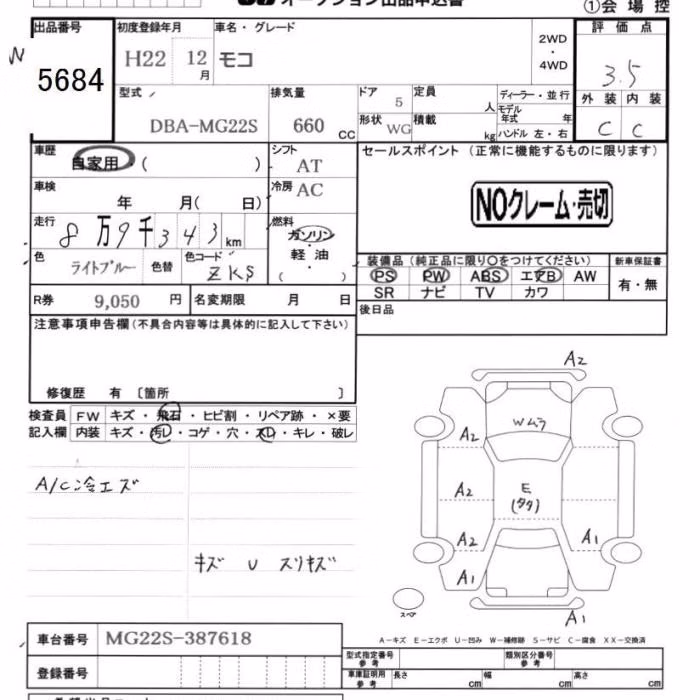 オークション出品申込書
①会場控
出品番号 初度登録年月 車名・グレード 評価点
5684 H22 12月 モコ 2WD・4WD 3.5
型式 排気量 ドア 定員 ディーラー・並行 外装 内装
DBA-MG22S 660CC 5 人 モデル年式 年 C C
形状 WG 積載 kg ハンドル 左・右
車歴 自家用・( ) シフト AT セールスポイント (正常に機能するものに限ります)
車検 年 月( 日) 冷房 AC NOクレーム・売切
走行 8万9千343km 燃料 ガソリン・軽油・( )
色 ライトブルー 色替 色コード ZKS
装備品(純正品に限り○をつけてください) 新車保証書
PS PW ABS エアB AW 有・無
SR ナビ TV カワ
R券 9,050円 名変期限 月 日 後日品
注意事項申告欄(不具合内容等は具体的に記入して下さい)
修復歴 有 〔箇所 〕
検査員 FW キズ・飛石・ヒビ割・リペア跡・×要
記入欄 内装 キズ・汚レ・コゲ・穴・スレ・キレ・破レ
A/C冷エズ
キズ U スリキズ
A2
Wムラ
A2
A2 E
(タタ)
A2 A1
A1
A1
スペア
A-キズ E-エクボ U-凹み W-補修跡 S-サビ C-腐食 XX-交換済
車台番号 MG22S-387618
型式指定番号 参考 類別区分番号 参考
登録番号 車庫証明用 参考 長さ cm 幅 cm 高さ cm